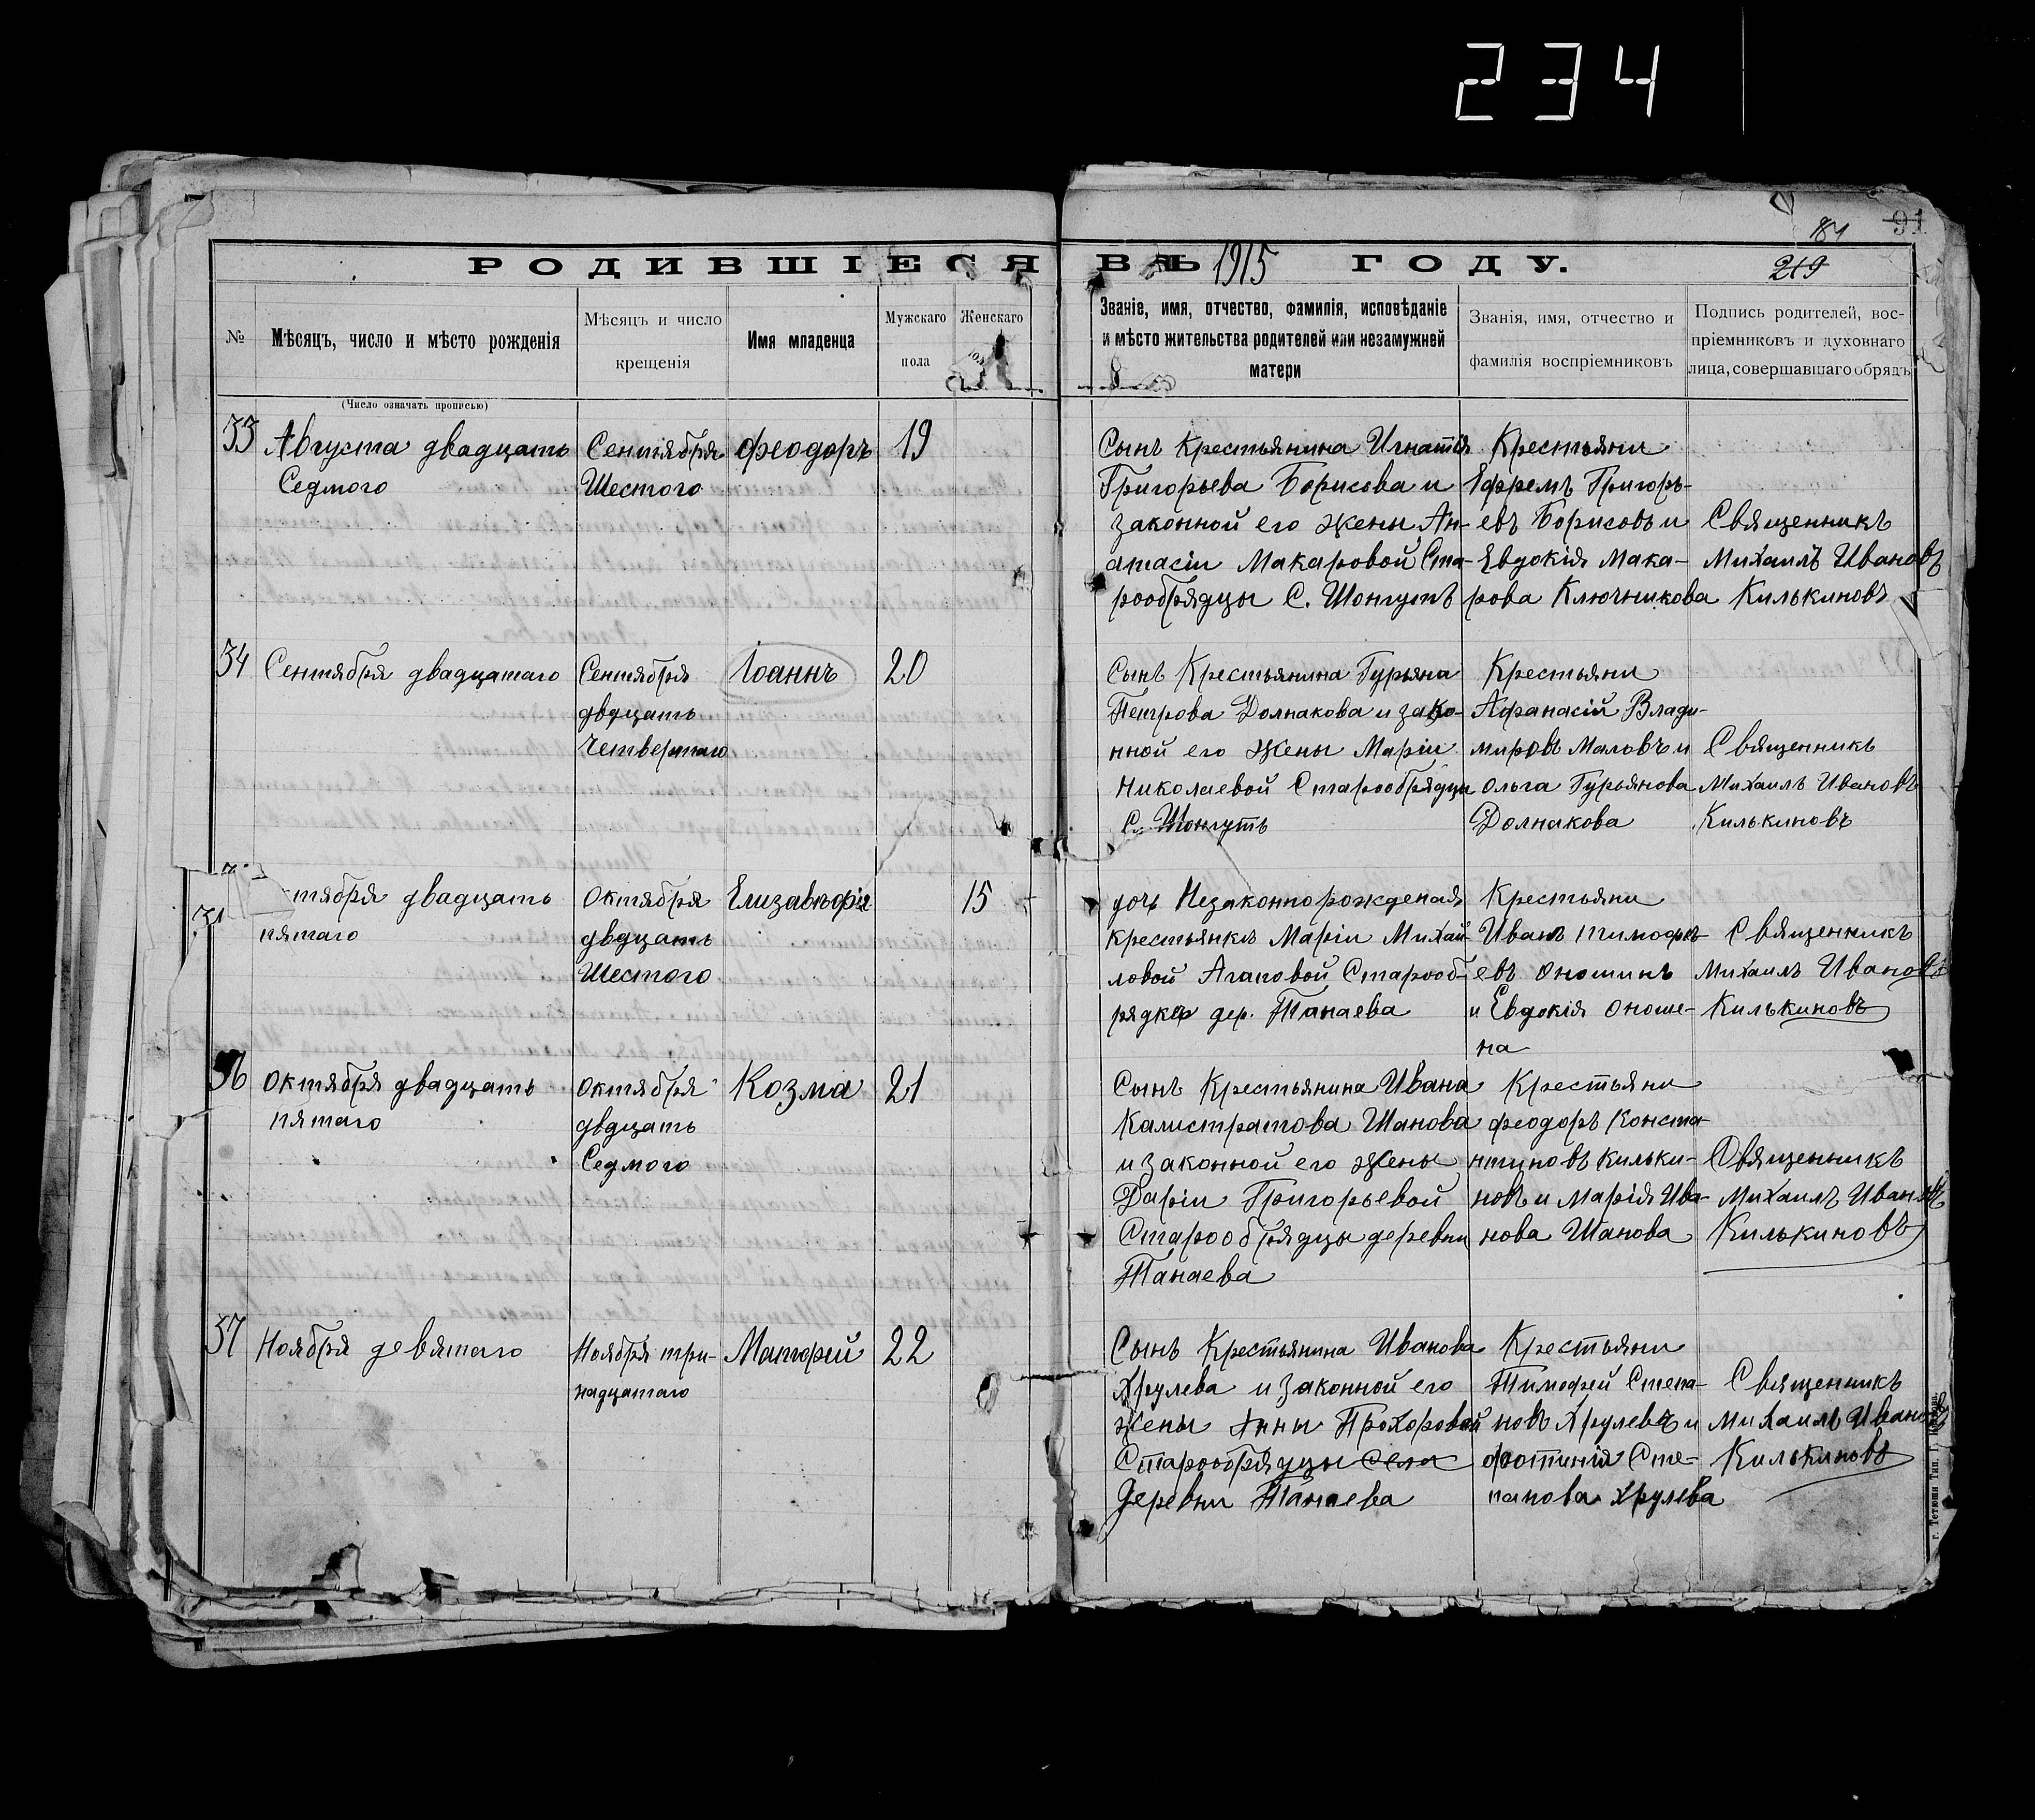 234
91
184
219
РОДИВШІЕСЯ ВЪ 1915 ГОДУ.
№
Мѣсяцъ, число и мѣсто рожденія
Мѣсяцъ и число
крещенія
Имя младенца
Мужскаго
пола
Женскаго
Званіе, имя, отчество, фамилія, исповѣданіе
и мѣсто жительства родителей или незамужней
матери
Званія, имя, отчество и
фамилія воспріемниковъ
Подпись родителей, вос-
пріемниковъ и духовнаго
лица, совершавшаго обрядъ
(Число означать прописью)
33
Августа двадцать
Седмого
Сентября
Шестого
Феодоръ
19
Сынъ Крестьянина Игнатія
Григорьева Борисова и
законной его жены Ан-
атасіи Макаровой Ста-
рообрядцы С. Шонгутъ
Крестьяни
Ефремъ Григорь-
евъ Борисовъ и
Евдокія Мака-
рова Ключникова
Священникъ
Михаилъ Ивановъ
Килькиновъ
34
Сентября двадцатаго
Сентября
двдцать
Четвертаго
Іоаннъ
20
Сынъ Крестьянина Гурьяна
Петрова Долнакова и зако-
нной его Жены Маріи
Николаевой Старообрядцы
С. Шонгутъ
Крестьяни
Афанасій Влади-
мировъ Маловъ и
Ольга Гурьянова
Долнакова
Священникъ
Михаилъ Ивановъ
Килькиновъ
тября двадцать
пятаго
Октября
двдцать
Шестого
Елизавѣфія
15
дочь Незаконнорожденая
крестьянкѣ Маріи Михай-
ловой Агаповой Старооб-
рядкер дер. Танаева
Крестьяни
Иванъ Тимофѣ-
евъ Оношинъ
и Евдокія Оноше-
на
Священникъ
Михаилъ Ивановъ
Килькиновъ
36
Октября двадцать
пятаго
Октября
двдцать
Седмого
Козма
21
Сынъ Крестьянина Ивана
Калистратова Шанова
и законной его Жены
Даріи Григорьевой
Старообрядцы деревни
Танаева
Крестьяни
Феодоръ Конста-
нтиновъ Кильки-
новъ и Марія Ива-
нова Шанова
Священникъ
Михаилъ Ивановъ
Килькиновъ
37
Ноября девятаго
Ноября три-
надцатаго
Матфей
22
Сынъ Крестьянина Иванова
Хрулева и законной его
Жены Анны Прохоровой
Старообрядцы Села
Деревни Танаева
Крестьяни
Тимофей Степа-
новъ Хрулевъ и
Фотинія Сте-
панова Хрулева
Священникъ
Михаилъ Ивановъ
Килькиновъ